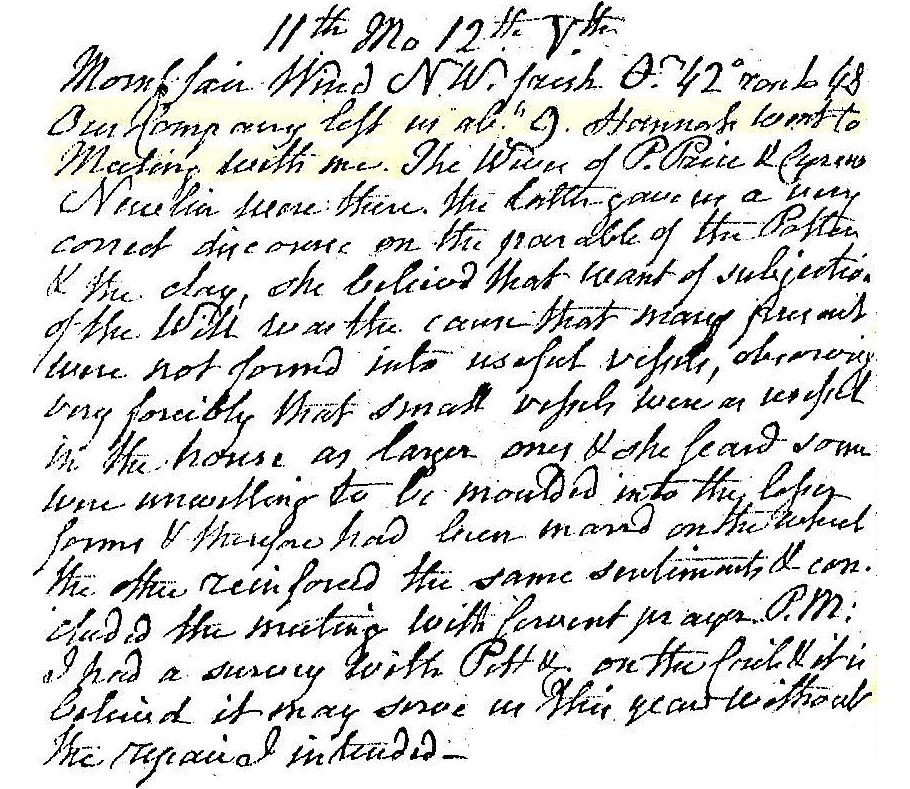 11th Mo 12th Vth
Morng fair Wind N.W. fresh Or. 42° rose to 48
Our Company left us abt. 9. Hannah went to
Meeting with me. The Wives of P. Price & Cyrus
Newlin were there. the latter gave us a very
correct discourse on the parable of the Potter
& the clay, she believed that want of subjection
of the Will was the cause that many present
were not formed into useful vessels, observing
very forcibly that small vessels were as useful
in the house as larger ones & she feard some
were unwilling to be moulded into the lesser
forms & therefore had been marrd on the wheel
the other reinforced the same sentiments & con-
cluded the meeting with fervent prayer. P.M:
I had a survey with on the & it is
believed it may serve us this year without
the repair I intended —